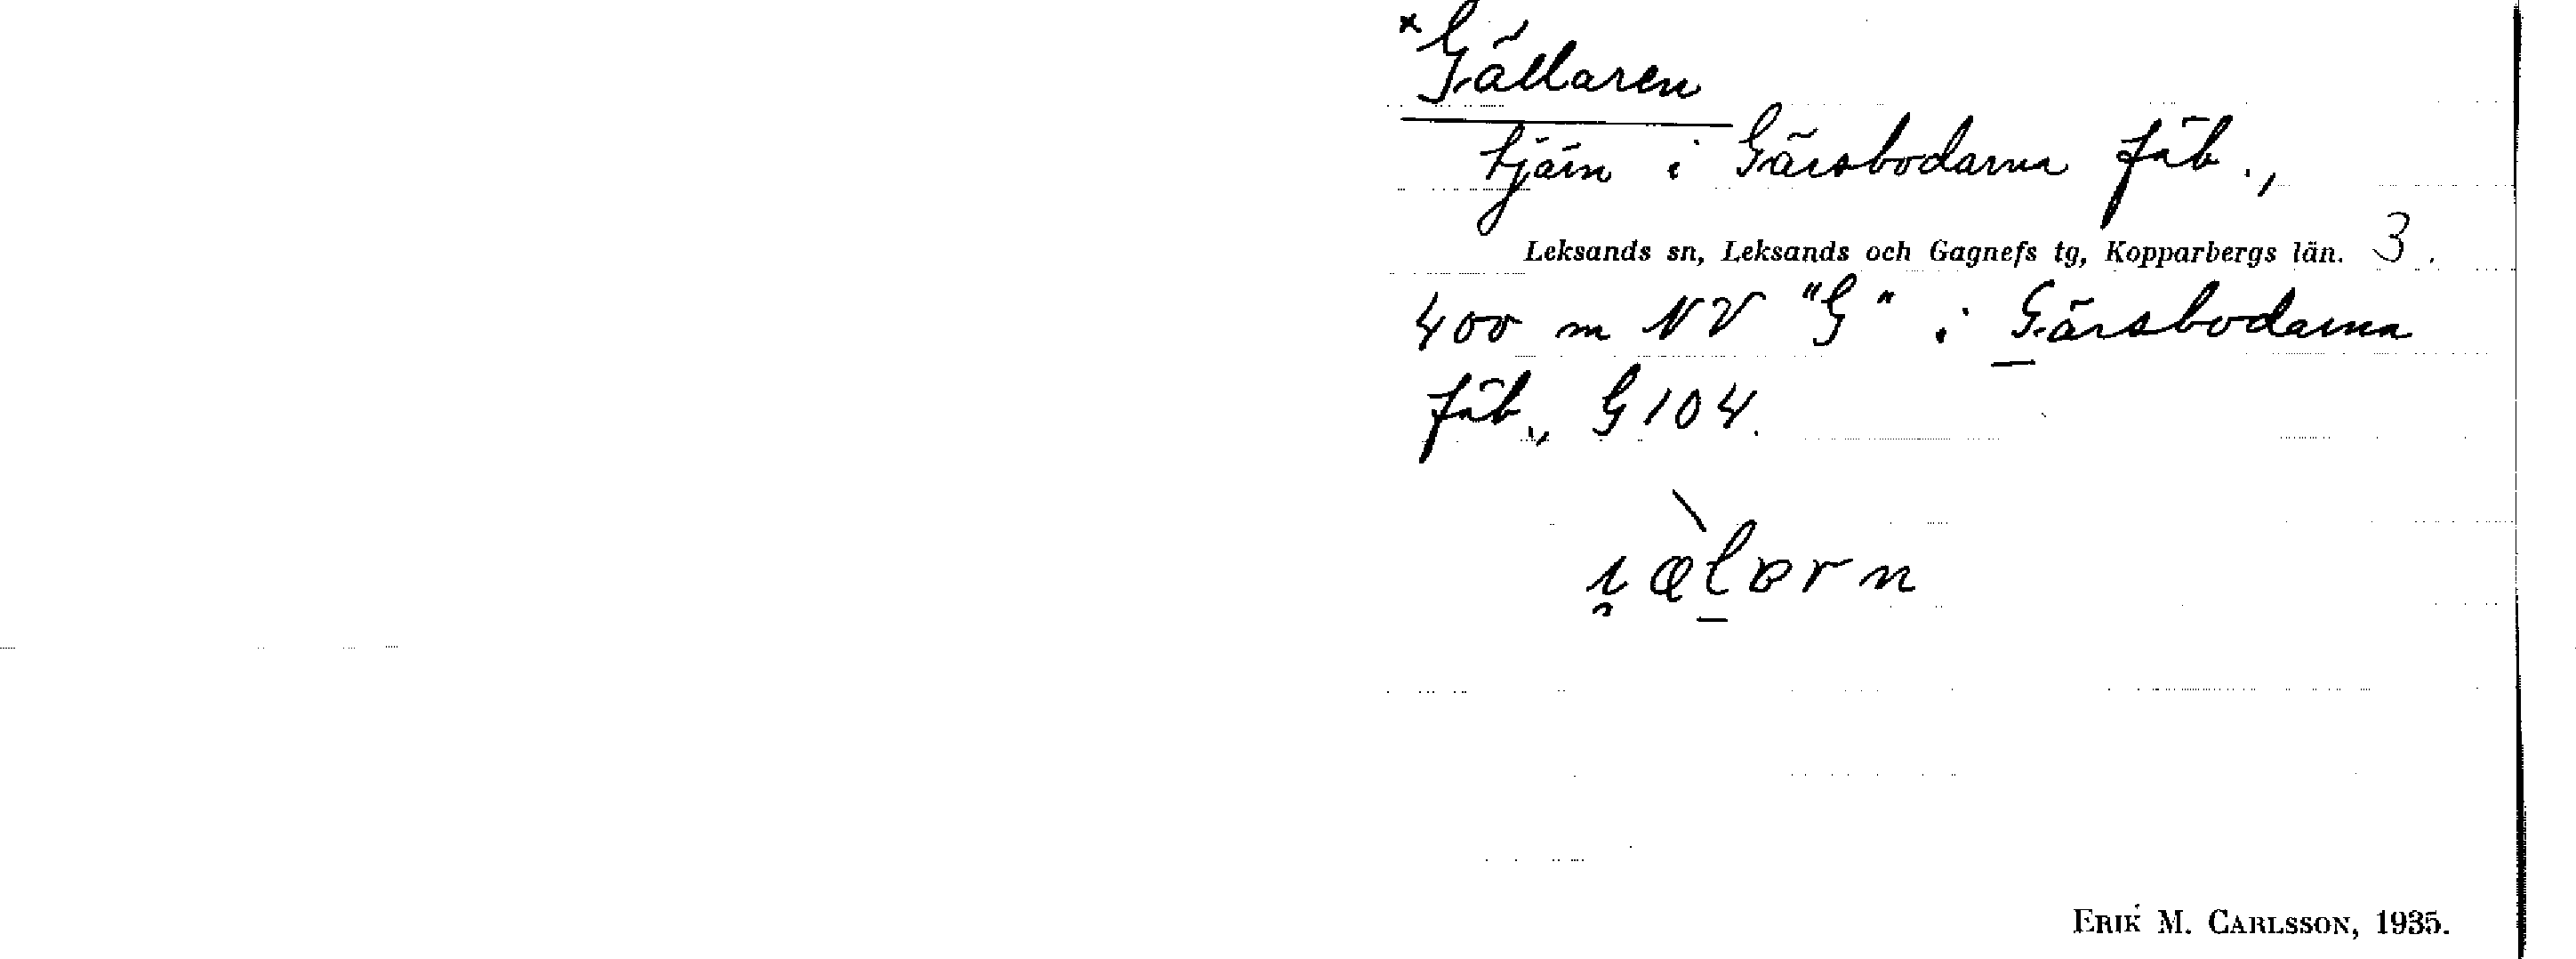 *Gällaren
tjärn i Gärsbodarna fäb.,
Leksands sn, Leksands och Gagnefs tg, Kopparbergs län. 3.
400 m NV "G" i Gärsbodarna
fäb., G 104.
i̯æ̀l̠ɐrn
ERIK M. CARLSSON, 1935.